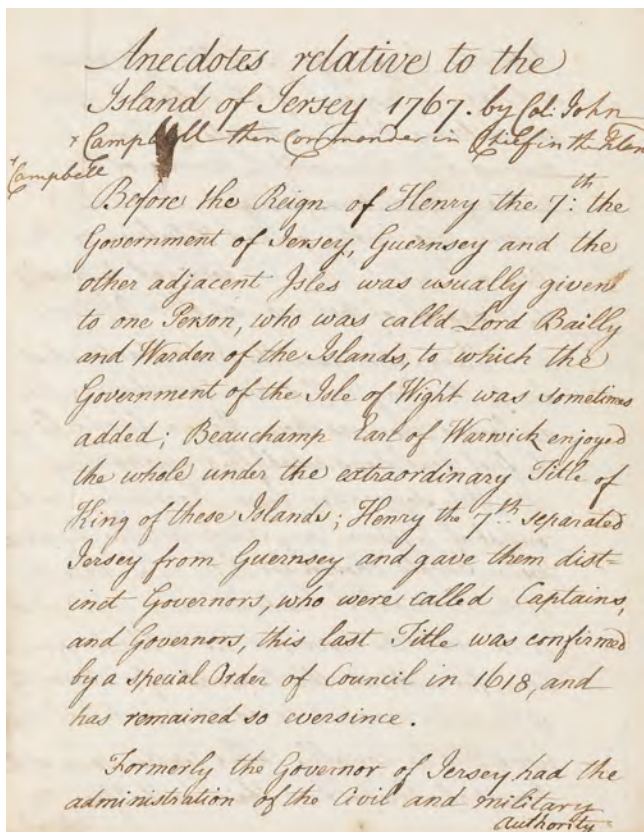 Anecdotes relative to the
Island of Jersey 1767. by Col: John
x Campbell then Commander in Chief in the Islan
x
Campbell
Before the Reign of Henry the 7:th the
Government of Jersey, Guernsey and the
other adjacent Isles was usually given
to one Person, who was calld Lord Bailly
and Warden of the Islands, to which the
Government of the Isle of Wight was sometimes
added; Beauchamp Earl of Warwick enjoyed
the whole under the extraordinary Title of
King of these Islands; Henry the 7th separated
Jersey from Guernsey and gave them dist=
inct Governors, who were called Captains,
and Governors, this last Title was confirmed
by a special Order of Council in 1618, and
has remained so eversince.
Formerly the Governor of Jersey, had the
administration of the Civil and military
Authority